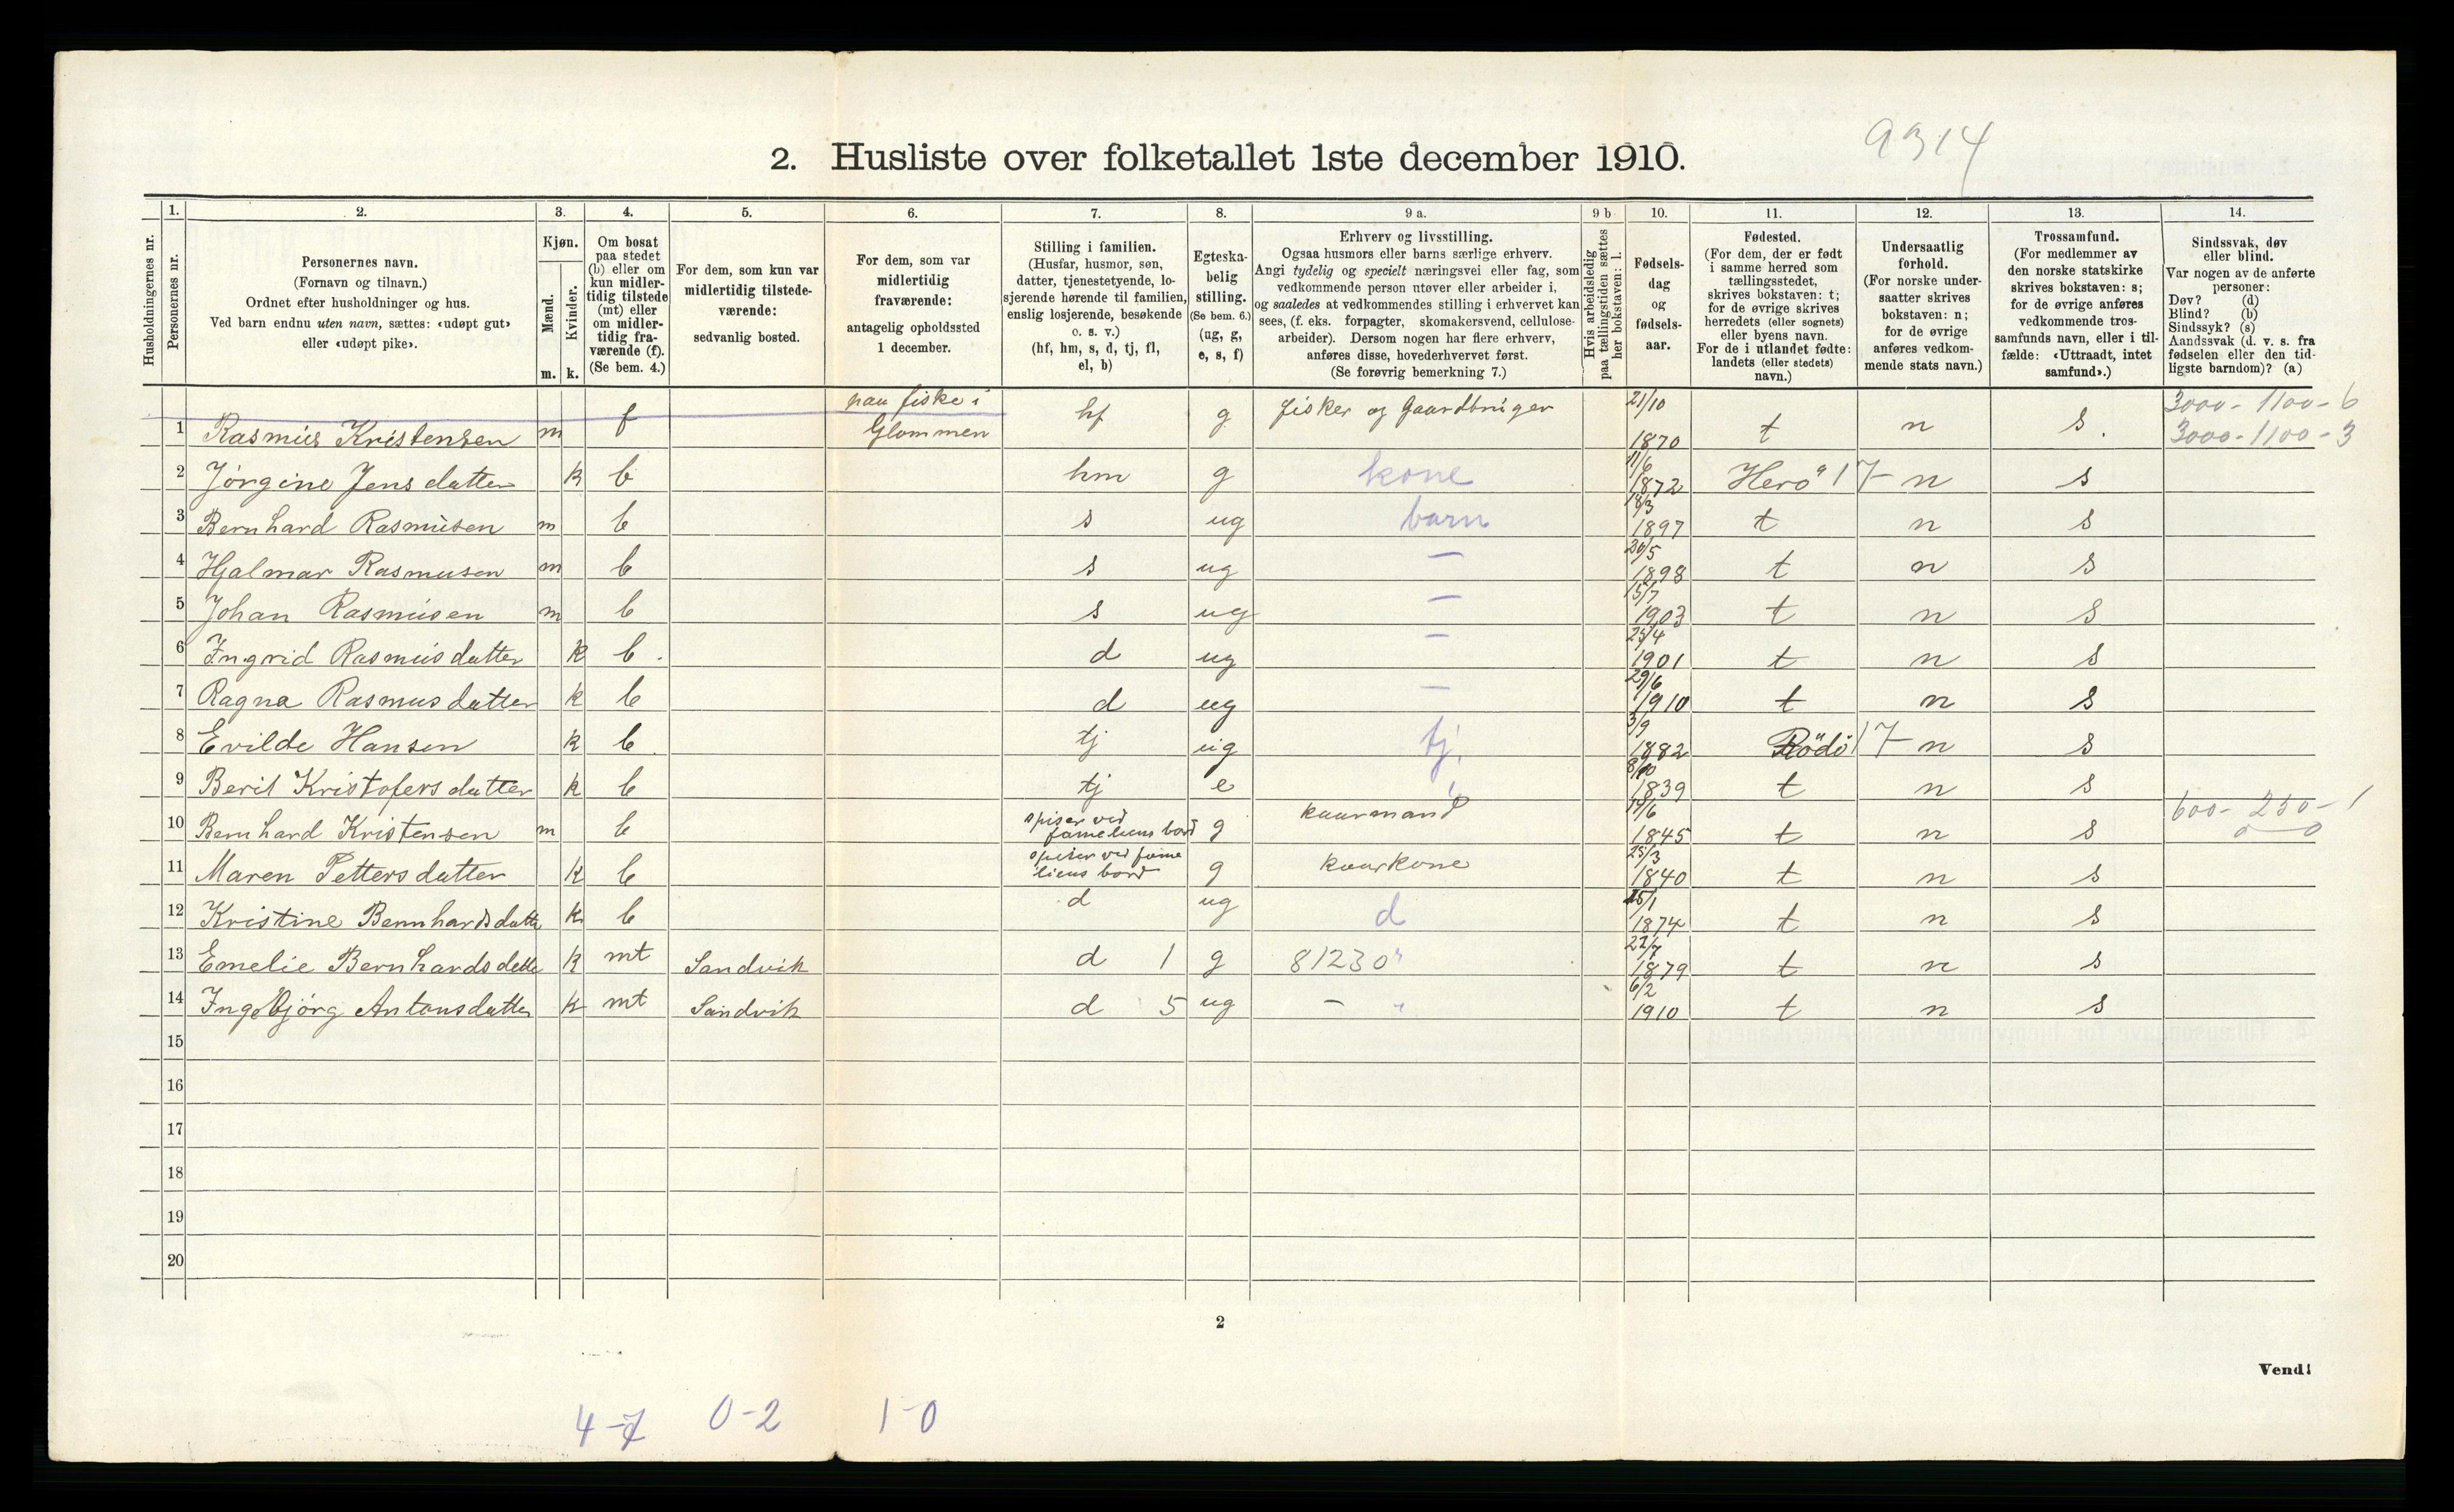 9314
2. Husliste over folketallet 1ste december 1910.
Husholdningernes nr.
1.
Personernes nr.
2.
Personernes navn.
(Fornavn og tilnavn.)
Ordnet efter husholdninger og hus.
Ved barn endnu uten navn, sættes: «udøpt gut»
eller «udøpt pike».
3.
Kjøn.
Mænd.
Kvinder.
m. k.
4.
Om bosat
paa stedet
(b) eller om
kun midler-
tidig tilstede
(mt) eller
om midler-
tidig fra-
værende (f).
(Se bem. 4.)
5.
For dem, som kun var
midlertidig tilstede-
værende:
sedvanlig bosted.
6.
For dem, som var
midlertidig
fraværende:
antagelig opholdssted
1 december.
7.
Stilling i familien.
(Husfar, husmor, søn,
datter, tjenestetyende, lo-
sjerende hørende til familien,
enslig losjerende, besøkende
o. s. v.)
(hf, hm, s, d, tj, fl,
el, b)
8.
Egteska-
belig
stilling.
(Se bem. 6.)
(ug, g,
e, s, f)
9 a.
Erhverv og livsstilling.
Ogsaa husmors eller barns særlige erhverv.
Angi tydelig og specielt næringsvei eller fag, som
vedkommende person utøver eller arbeider i,
og saaledes at vedkommendes stilling i erhvervet kan
sees, (f. eks. forpagter, skomakersvend, cellulose-
arbeider). Dersom nogen har flere erhverv,
anføres disse, hovederhvervet først.
(Se forøvrig bemerkning 7.)
9 b
Hvis arbeidsledig
paa tællingstiden sættes
her bokstaven: l.
10.
Fødsels-
dag
og
fødsels-
aar.
11.
Fødested.
(For dem, der er født
i samme herred som
tællingsstedet,
skrives bokstaven: t;
for de øvrige skrives
herredets (eller sognets)
eller byens navn.
For de i utlandet fødte:
landets (eller stedets)
navn.)
12.
Undersaatlig
forhold.
(For norske under-
saatter skrives
bokstaven: n;
for de øvrige
anføres vedkom-
mende stats navn.)
13.
Trossamfund.
(For medlemmer av
den norske statskirke
skrives bokstaven: s;
for de øvrige anføres
vedkommende tros-
samfunds navn, eller i til-
fælde: «Uttraadt, intet
samfund».)
14.
Sindssvak, døv
eller blind.
Var nogen av de anførte
personer:
Døv? (d)
Blind? (b)
Sindssyk? (s)
Aandssvak (d. v. s. fra
fødselen eller den tid-
ligste barndom)? (a)
1 Rasmus Kristensen m f paa fiske i Glommen hf g fisker og Gaardbruger 21/10 1870 t n s. 3000-1100-6
3000-1100-3
2 Jørgine Jens datter k b hm g kone 11/6 1872 Herö 17 n s
3 Bernhard Rasmusen m b s ug barn 18/3 1897 t n s
4 Hjalmar Rasmusen m b s ug — 30/5 1898 t n s
5 Johan Rasmusen m b s ug — 15/7 1903 t n s
6 Ingrid Rasmus datter k b. d ug — 25/4 1901 t n s
7 Ragna Rasmus datter k b d ug — 29/6 1910 t n s
8 Evilde Hansen k b. tj ug tj. 3/9 1882 Rödö 17 n s
9 Berit Kristofers datter k b tj e " 8/10 1839 t n s
10 Bernhard Kristensen m b spiser ved fameliens bord g kaarmand 14/6 1845 t n s 600-250-1
0 0
11 Maren Petters datter k b spiser ved fame liens bord g kaarkone 25/3 1840 t n s
12 Kristine Bernhards datte k b d ug d 15/1 1874 t n s
13 Emelie Bernhards dette k mt Sandvik d 1 g 81230 " 22/7 1879 t n s
14 Ingebjørg Antons datter k mt Sandvik d 5 ug — " 6/2 1910 t n s
15
16
17
18
19
20
2
Vend!
4-7 0-2 1-0